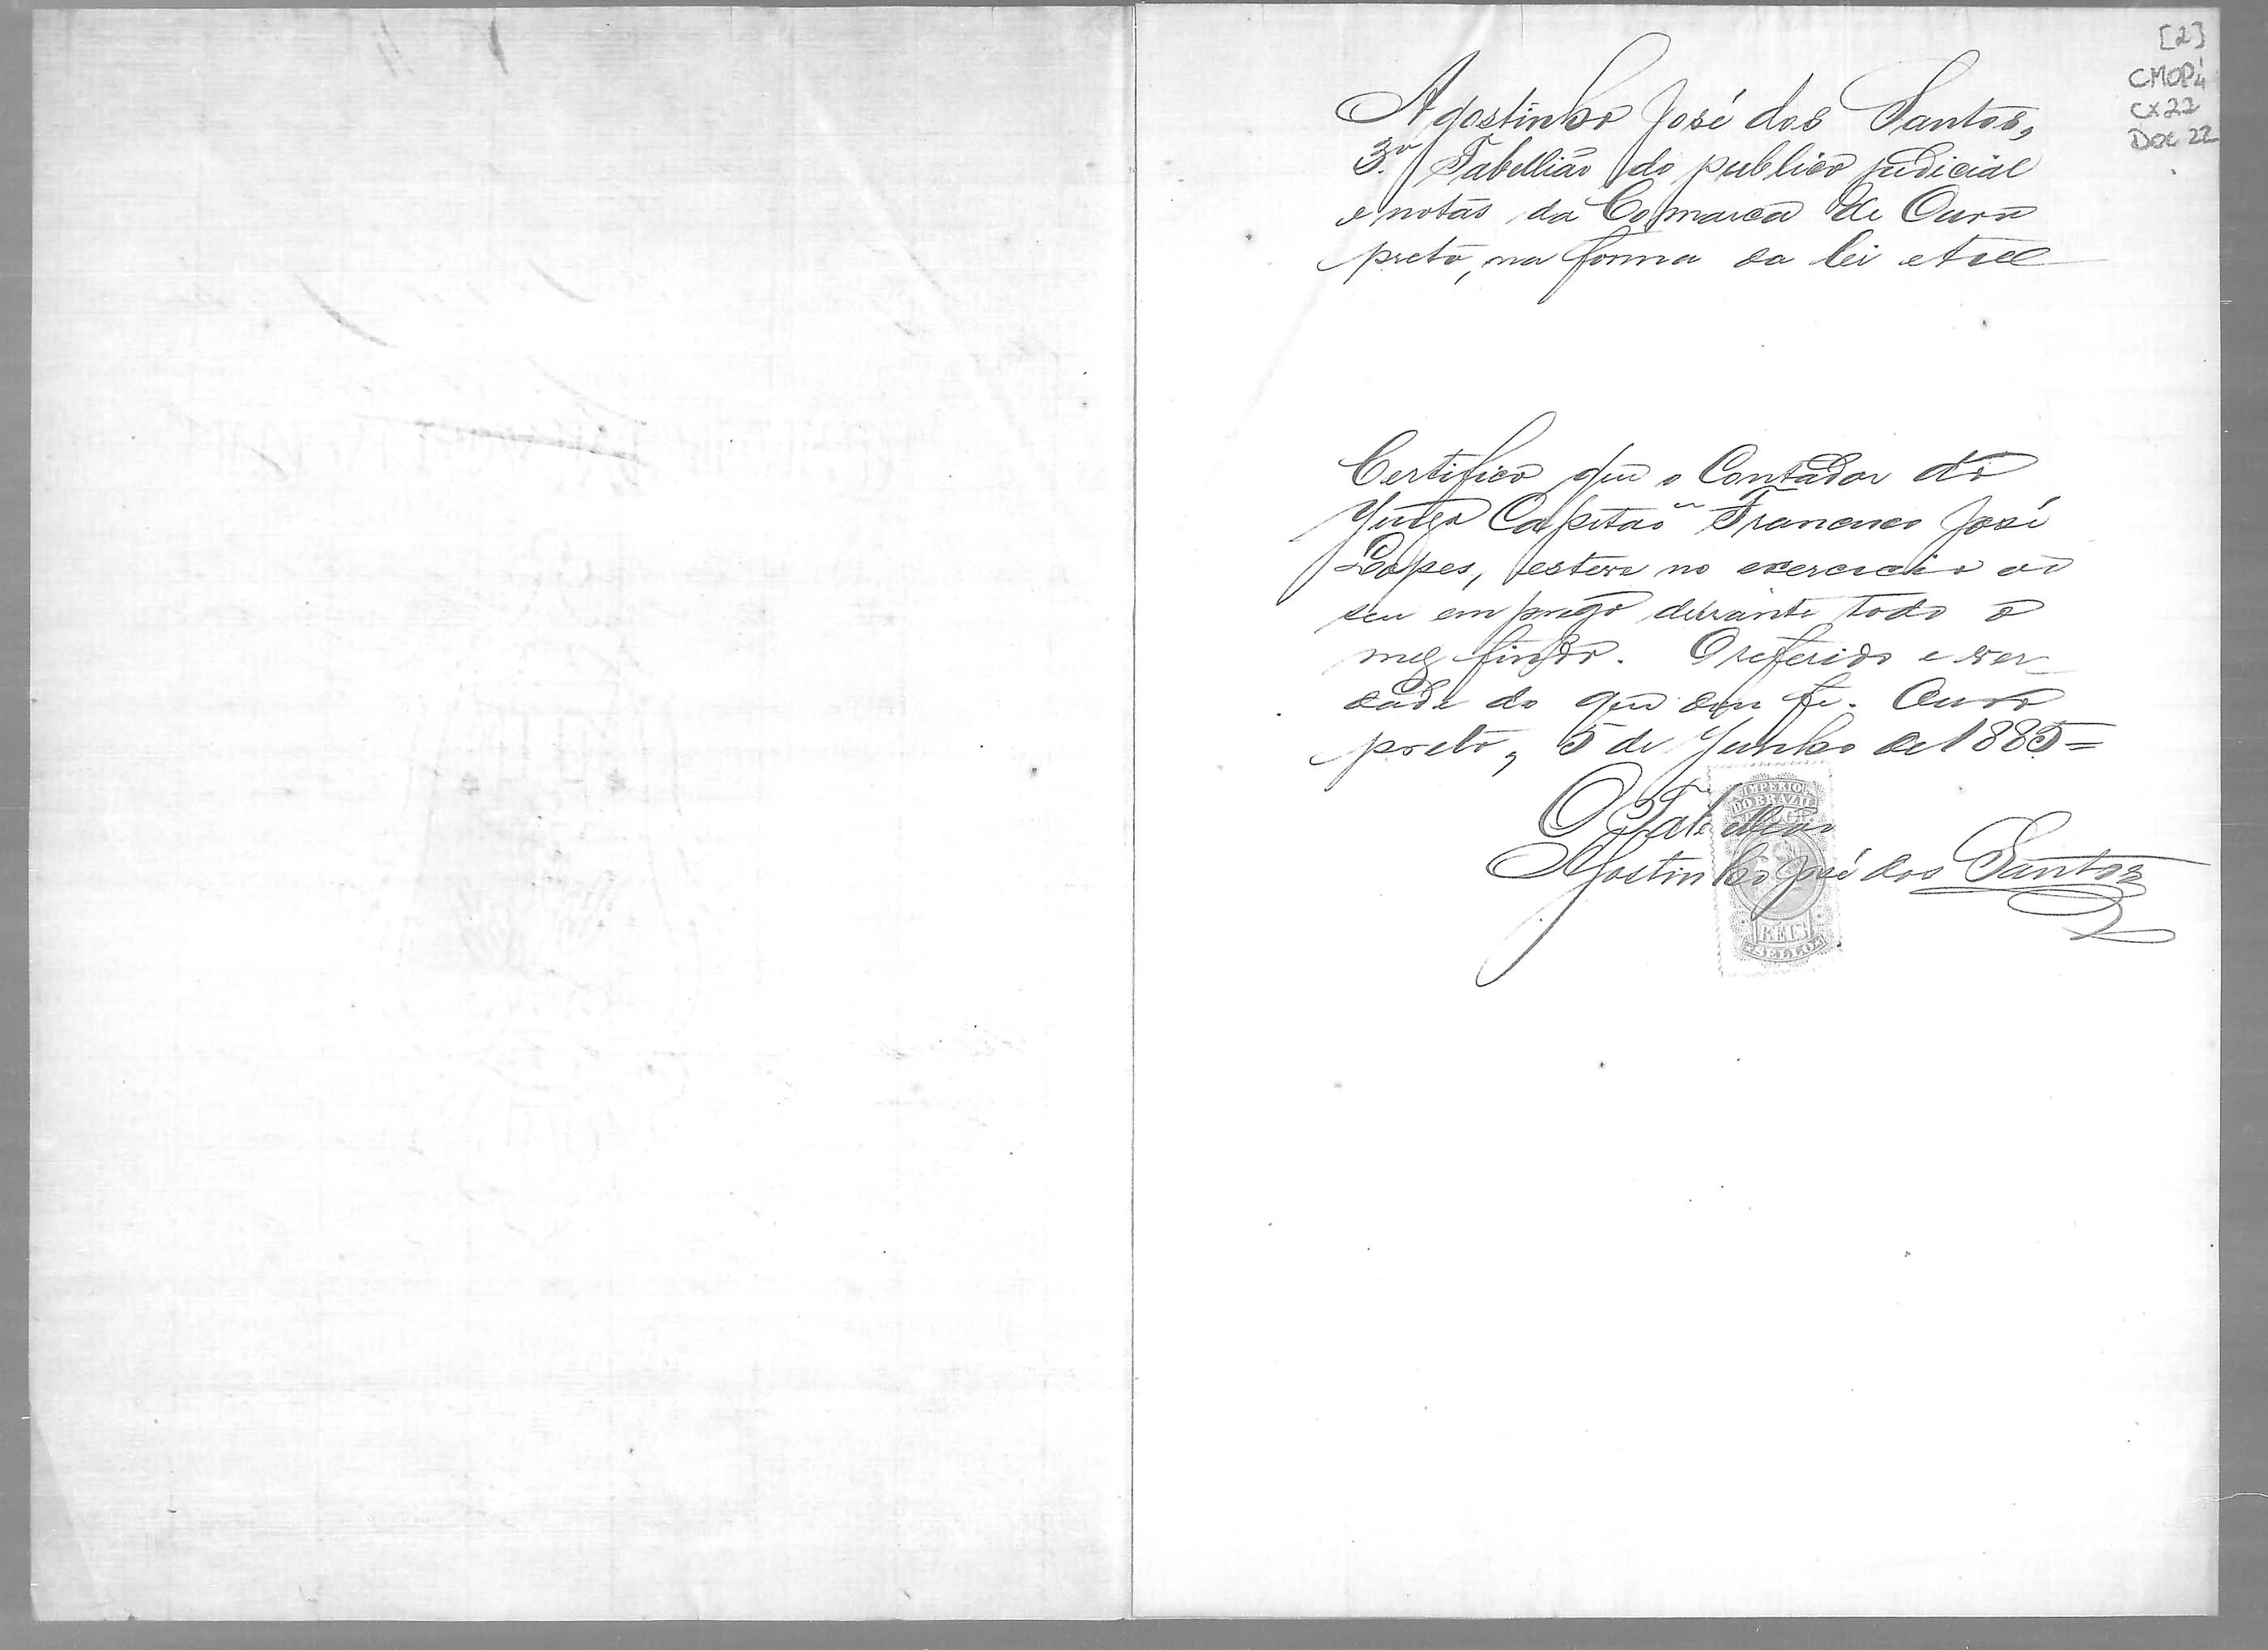 [2]
CMOP 4
CX 22
DOC 22
Agostinho José dos Santos,
3.º Tabellião do publico judicial
e notas da Comarca de Ouro
preto, na forma da lei etc
Certifico que o Contador do
Juizo Capitão Francisco José
Lopes, esteve no exercicio do
seu emprego durante todo o
mez findo. O referido e ver
dade do que dou fe. Ouro
preto, 5 de Junho de 1885=
O Tabellião
Agostinho José dos Santos
IMPERIO
DO BRAZIL
REIS
SELLO